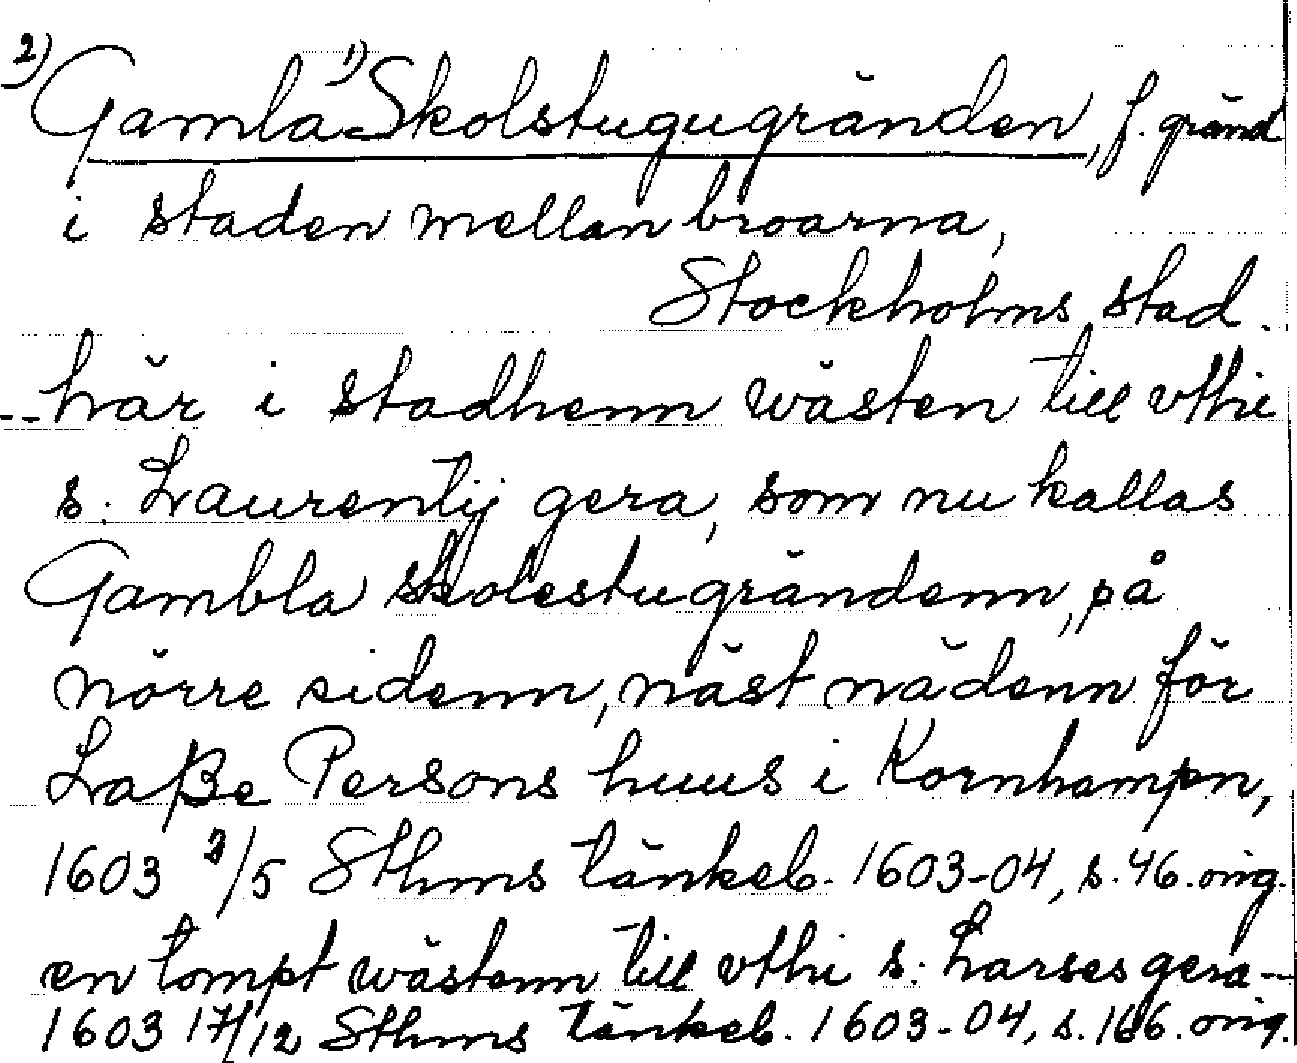 2) Gamla 1) Skolstugugränden, f. gränd
i staden mellan broarna,
Stockholms stad.
-- här i stadhenn wästen till vthi
s. Laurentij gera, som nu kallas
Gambla skolestugrändenn, på
nörre sidenn, näst nädenn för
Laße Persons huus i Kornhampn,
1603 2/5 Sthms tänkeb. 1603-04, s. 46. orig.
en tompt wästenn till vthi s: Larses gera --
1603 17/12 Sthms tänkeb. 1603-04, s. 166. orig.